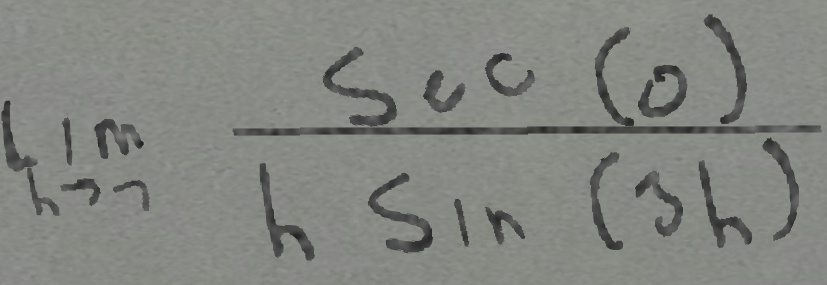 Lim sec (0)
h→7 h sin (3h)